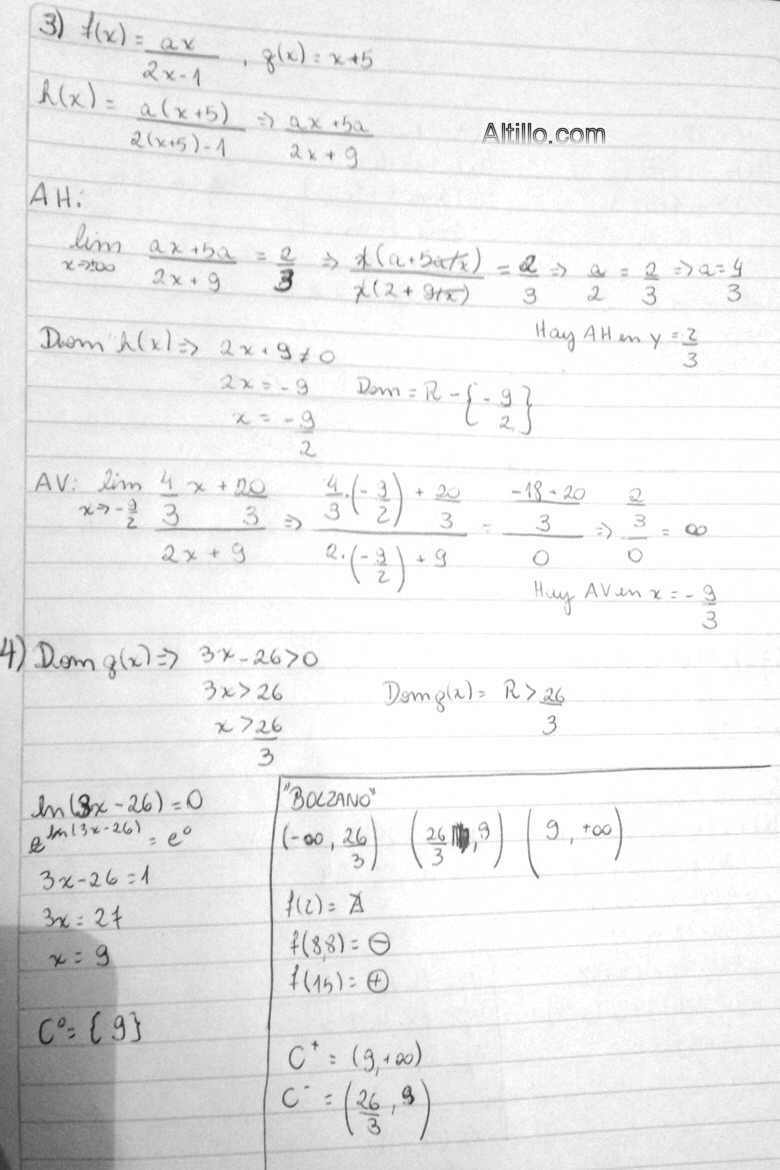 3) f(x) = ax / 2x-1 , g(x) = x+5
h(x) = a(x+5) / 2(x+5)-1 => ax+5a / 2x+9
Altillo.com
AH:
lim x->±∞ ax+5a / 2x+9 = 2/3 => x(a+5a/x) / x(2+9/x) = 2/3 => a/2 = 2/3 => a = 4/3
Hay AH en y = 2/3
Dom h(x) => 2x+9 ≠ 0
2x = -9 Dom = R - {-9/2}
x = -9/2
AV: lim x->-9/2 4/3 x + 20/3 / 2x+9 => 4/3·(-9/2) + 20/3 / 2·(-9/2) + 9 = -18 + 20 / 3 / 0 => 2/3 / 0 = ∞
Hay AV en x = -9/3
4) Dom g(x) => 3x-26>0
3x>26 Dom g(x) = R > 26/3
x > 26/3
ln(3x-26) = 0
e^ln(3x-26) = e^0
3x-26 = 1
3x = 27
x = 9
C° = {9}
"BOLZANO"
(-∞, 26/3) (26/3, 9) (9, +∞)
f(2) = ∄
f(8,8) = ⊖
f(15) = ⊕
C⁺ = (9, +∞)
C⁻ = (26/3, 9)